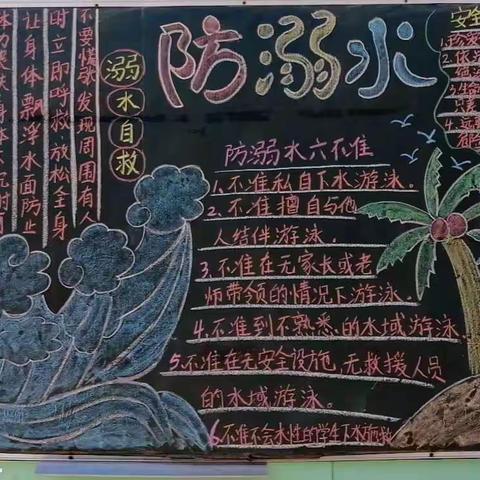 防溺水
溺水自救
不要慌张 发现周围有人
时立即呼救 放松全身
让身体飘浮水面防止
防溺水六不准
1.不准私自下水游泳。
2.不准擅自与他
人结伴游泳。
3.不准在无家长或老
师带领的情况下游泳。
4.不准到不熟悉的水域游泳
5.不准在无安全设施、无救援人员
的水域游泳。
6.不准不会水性的学生下水施救
安全